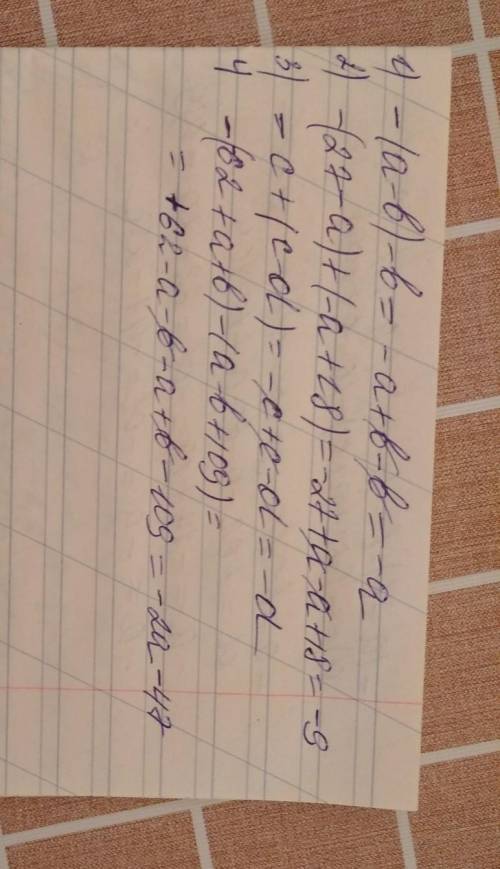 1) -(a-b)-b=-a+b-b=-a
2) -(27-a)+(-a+18)=-27+a-a+18=-9
3) -c+(c-d)=-c+c-d=-d
4 -(62+a+b)-(a-b+109)=
=+62-a-b-a+b-109=-2a-47